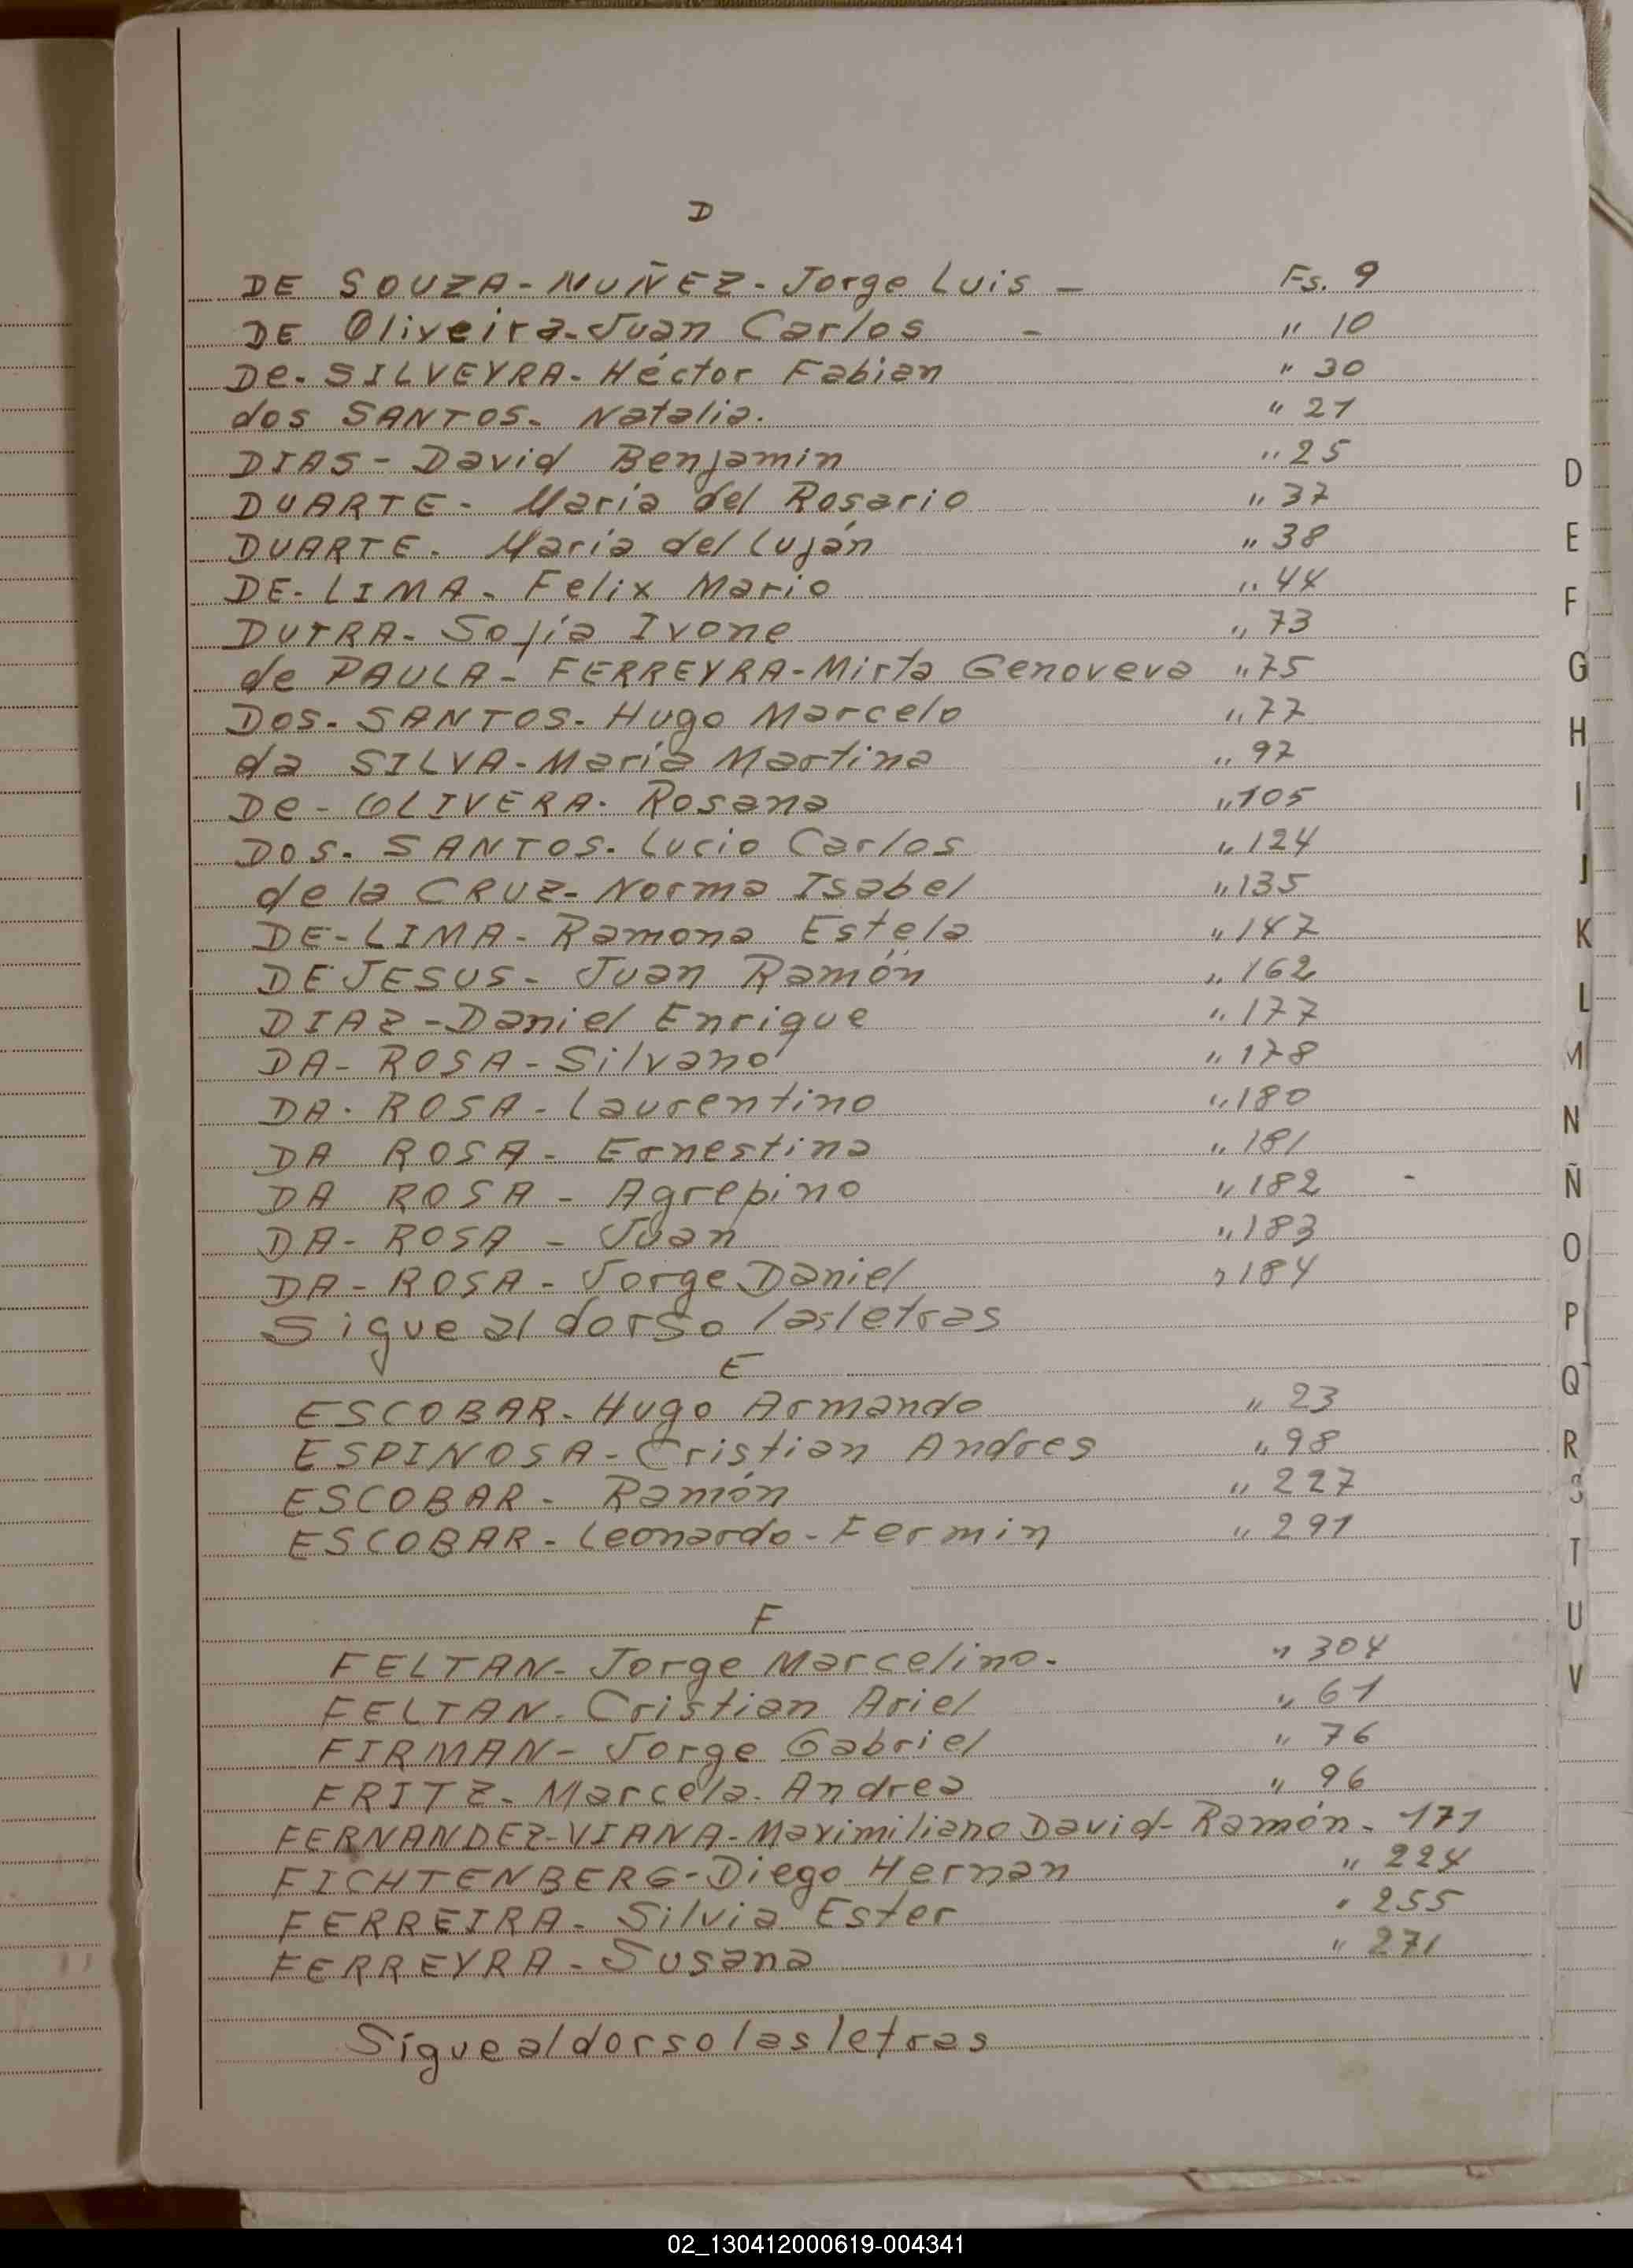 D
DE SOUZA - NUÑEZ - Jorge Luis - Fs. 9
DE Oliveira - Juan Carlos - " 10
De - SILVEYRA - Héctor Fabian " 30
dos SANTOS - Natalia. " 21
DIAS - David Benjamin " 25
DUARTE - María del Rosario " 37
DUARTE - María del Luján " 38
DE - LIMA - Felix Mario " 44
DUTRA - Sofia Ivone " 73
de PAULA - FERREYRA - Mirta Genoveva " 75
Dos - SANTOS - Hugo Marcelo " 77
da SILVA - María Martina " 97
De - OLIVERA - Rosana " 105
DOS - SANTOS - Lucio Carlos " 124
de la CRUZ - Norma Isabel " 135
DE - LIMA - Ramona Estela " 147
DE JESUS - Juan Ramón " 162
DIAZ - Daniel Enrique " 177
DA - ROSA - Silvano " 178
DA - ROSA - Laurentino " 180
DA ROSA - Ernestina " 181
DA ROSA - Agrepino " 182
DA - ROSA - Juan " 183
DA - ROSA - Jorge Daniel " 184
Sigue al dorso las letras
E
ESCOBAR - Hugo Armando " 23
ESPINOSA - Cristian Andres " 98
ESCOBAR - Ramón " 227
ESCOBAR - Leonardo - Fermin " 291
F
FELTAN - Jorge Marcelino - " 304
FELTAN - Cristian Ariel " 61
FIRMAN - Jorge Gabriel " 76
FRITZ - Marcela Andrea " 96
FERNANDEZ - VIANA - Maximiliano David - Ramón - 171
FICHTENBERG - Diego Hernan " 224
FERREIRA - Silvia Ester " 255
FERREYRA - Susana " 271
Sigue al dorso las letras
D
E
F
G
H
I
J
K
L
M
N
Ñ
O
P
Q
R
S
T
U
V
02_130412000619-004341